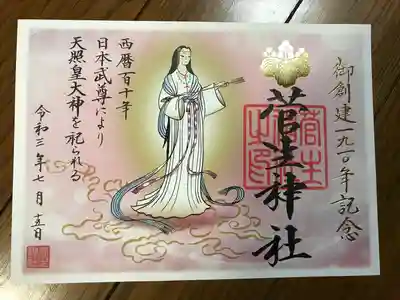 御創建一九一〇年記念
菅生神社
西暦百十年
日本武尊により
天照皇大神を祀られる
令和三年七月十五日